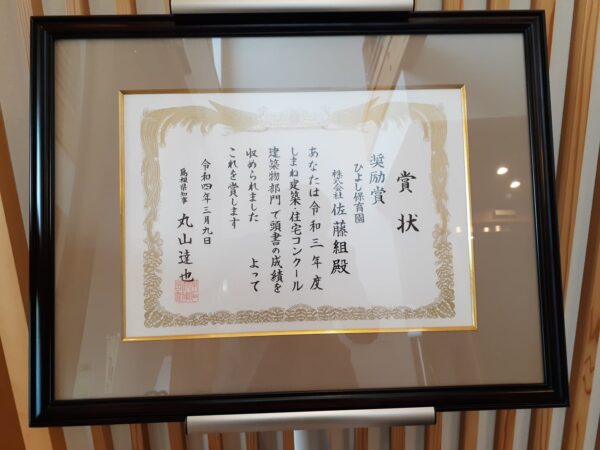 賞状
奨励賞
ひよし保育園
株式会社 佐藤組殿
あなたは令和三年度
しまね建築・住宅コンクール
建築物部門で頭書の成績を
収められました よって
これを賞します
令和四年三月九日
島根県知事 丸山達也